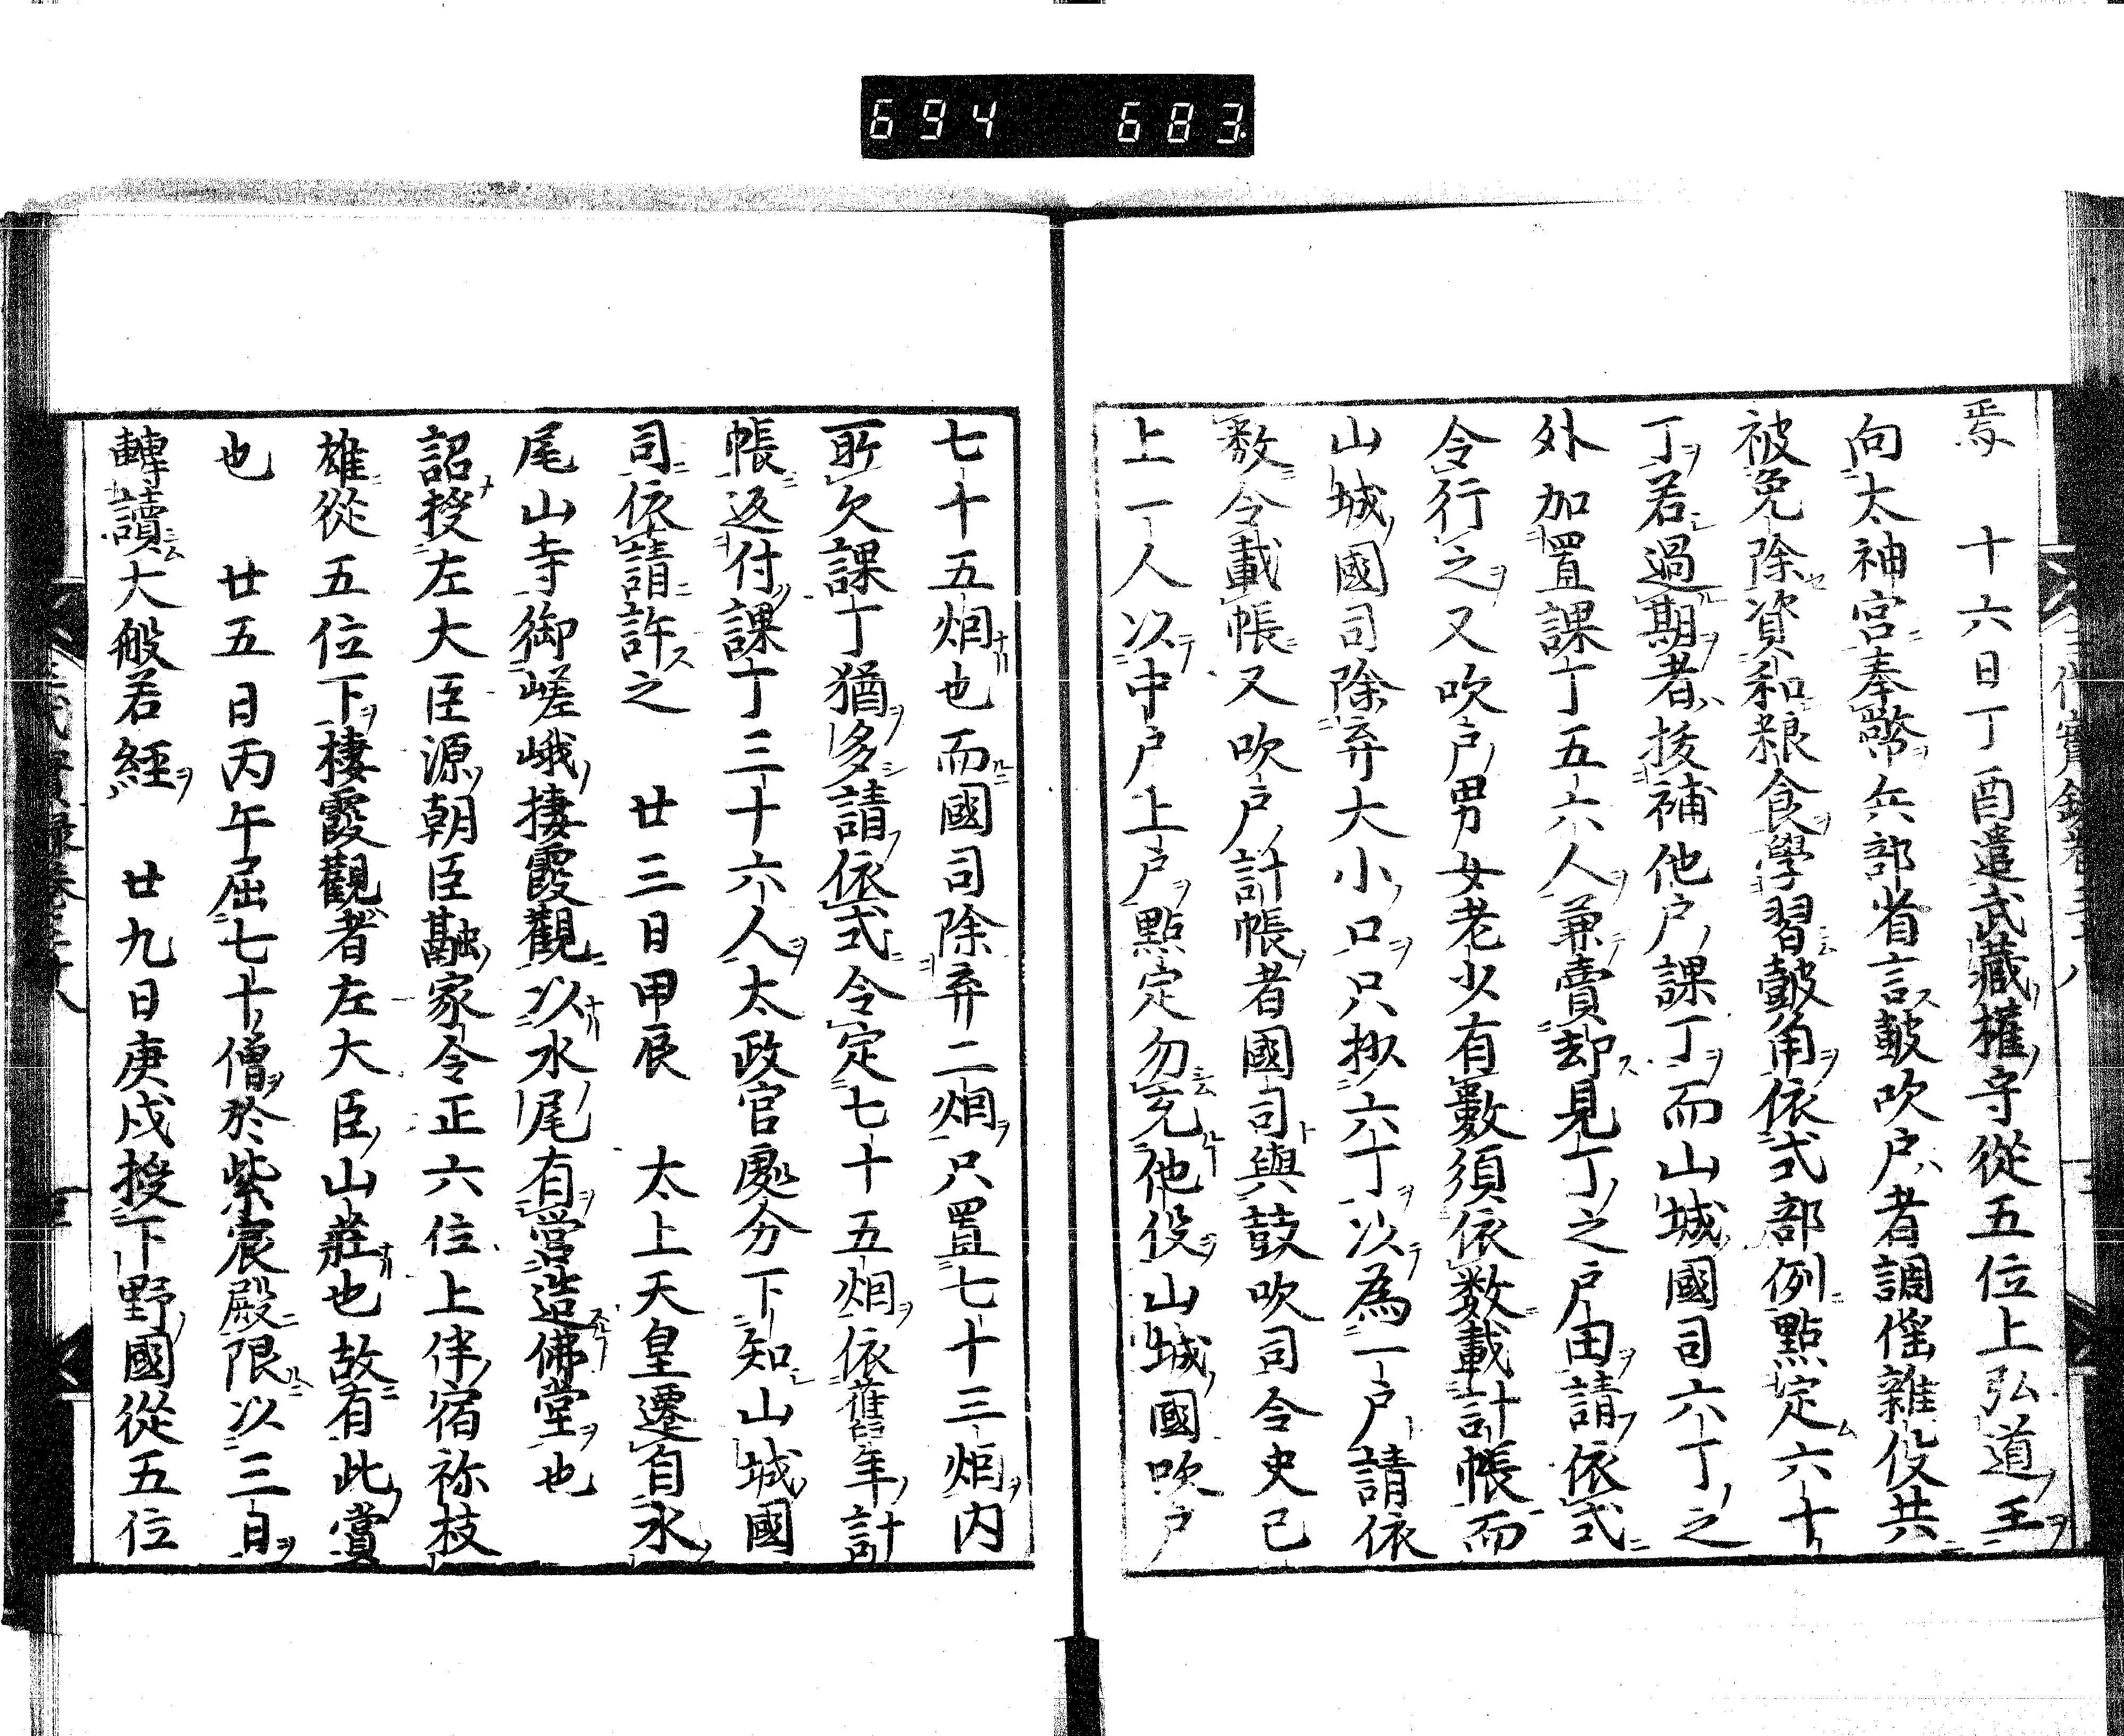 694 683
焉　十六日丁酉遣武藏權守從五位上弘道王
向太神宮奉幣兵部省言皷吹戶者調傜雜役共
被免除資和粮食學習皷角依式部例點定六十
丁若過期者挍補他戶課丁而山城國司六丁之
外加置課丁五六人兼賣却見丁之戶田請依式
令行之又吹戶男女老少有數須依数載計帳而
山城國司除弃大小口只抄六丁以為一戶請依
数令載帳又吹戶計帳者國司與鼓吹司令史已
上一人以中戶上戶點定勿充他役山城國吹戶
七十五烟也而國司除弃二烟只置七十三烟内
所欠課丁猶多請依式令定七十五烟依舊年計
帳返付課丁三十六人太政官處分下知山城國
司依請許之　廿三日甲辰　太上天皇遷自水
尾山寺御嵯峨棲霞觀以水尾有營造佛堂也
詔授左大臣源朝臣融家令正六位上伴宿祢枝
雄從五位下棲霞觀者左大臣山莊也故有此賞
也　廿五日丙午屈七十僧於紫宸殿限以三日
轉讀大般若經　廿九日庚戌授下野國從五位